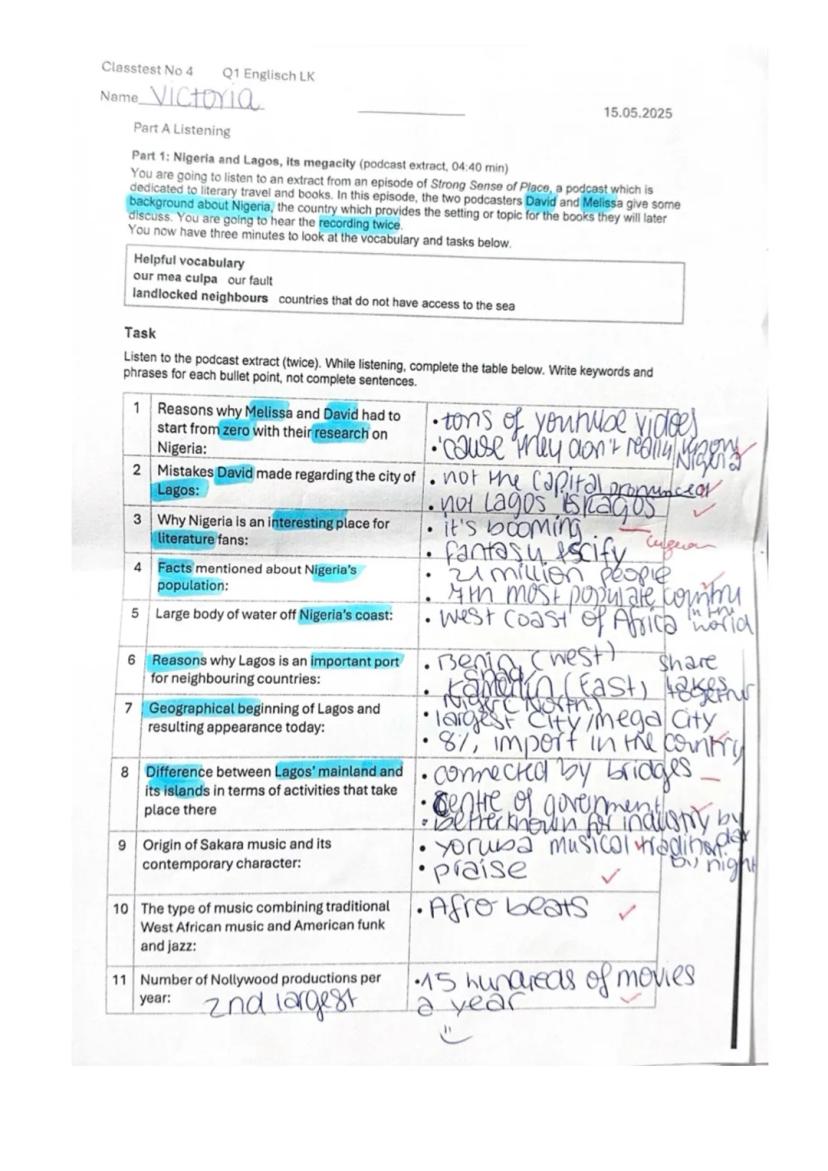 Classtest No 4 Q1 Englisch LK
Name Victoria
15.05.2025
Part A Listening
Part 1: Nigeria and Lagos, its megacity (podcast extract, 04:40 min)
You are going to listen to an extract from an episode of Strong Sense of Place, a podcast which is
dedicated to literary travel and books. In this episode, the two podcasters David and Melissa give some
background about Nigeria, the country which provides the setting or topic for the books they will later
discuss. You are going to hear the recording twice.
You now have three minutes to look at the vocabulary and tasks below.
Helpful vocabulary
our mea culpa our fault
landlocked neighbours countries that do not have access to the sea
Task
Listen to the podcast extract (twice). While listening, complete the table below. Write keywords and
phrases for each bullet point, not complete sentences.
1 Reasons why Melissa and David had to
start from zero with their research on
Nigeria:
• tons of youtube videos
• 'cause they don't really
Nigeria
2 Mistakes David made regarding the city of
Lagos:
• not the capital
• not Lagos
3 Why Nigeria is an interesting place for
literature fans:
• it's booming
• fantasy & scify
4 Facts mentioned about Nigeria's
population:
• 21 million people
• 7th most populate country
in the
world
5 Large body of water off Nigeria's coast:
• West coast of Africa
6 Reasons why Lagos is an important port
for neighbouring countries:
• Benin (West) share
• (East) takes
together
7 Geographical beginning of Lagos and
resulting appearance today:
• largest city/mega city
• 8%, import in the country
8 Difference between Lagos' mainland and
its islands in terms of activities that take
place there
• connected by bridges
• Centre of government
• better known for industry by
day
by night
9 Origin of Sakara music and its
contemporary character:
• yoruba musical tradition
• praise
10 The type of music combining traditional
West African music and American funk
and jazz:
• Afro beats
11 Number of Nollywood productions per
year: 2nd largest
• 15 hundreds of movies
a year